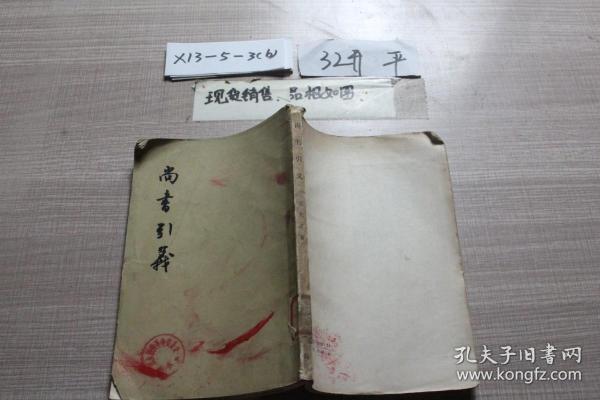 X13-5-3(6)
32开 平
现货销售、品相如图
尚書引義
尚书引义
孔夫子旧书网
www.kongfz.com